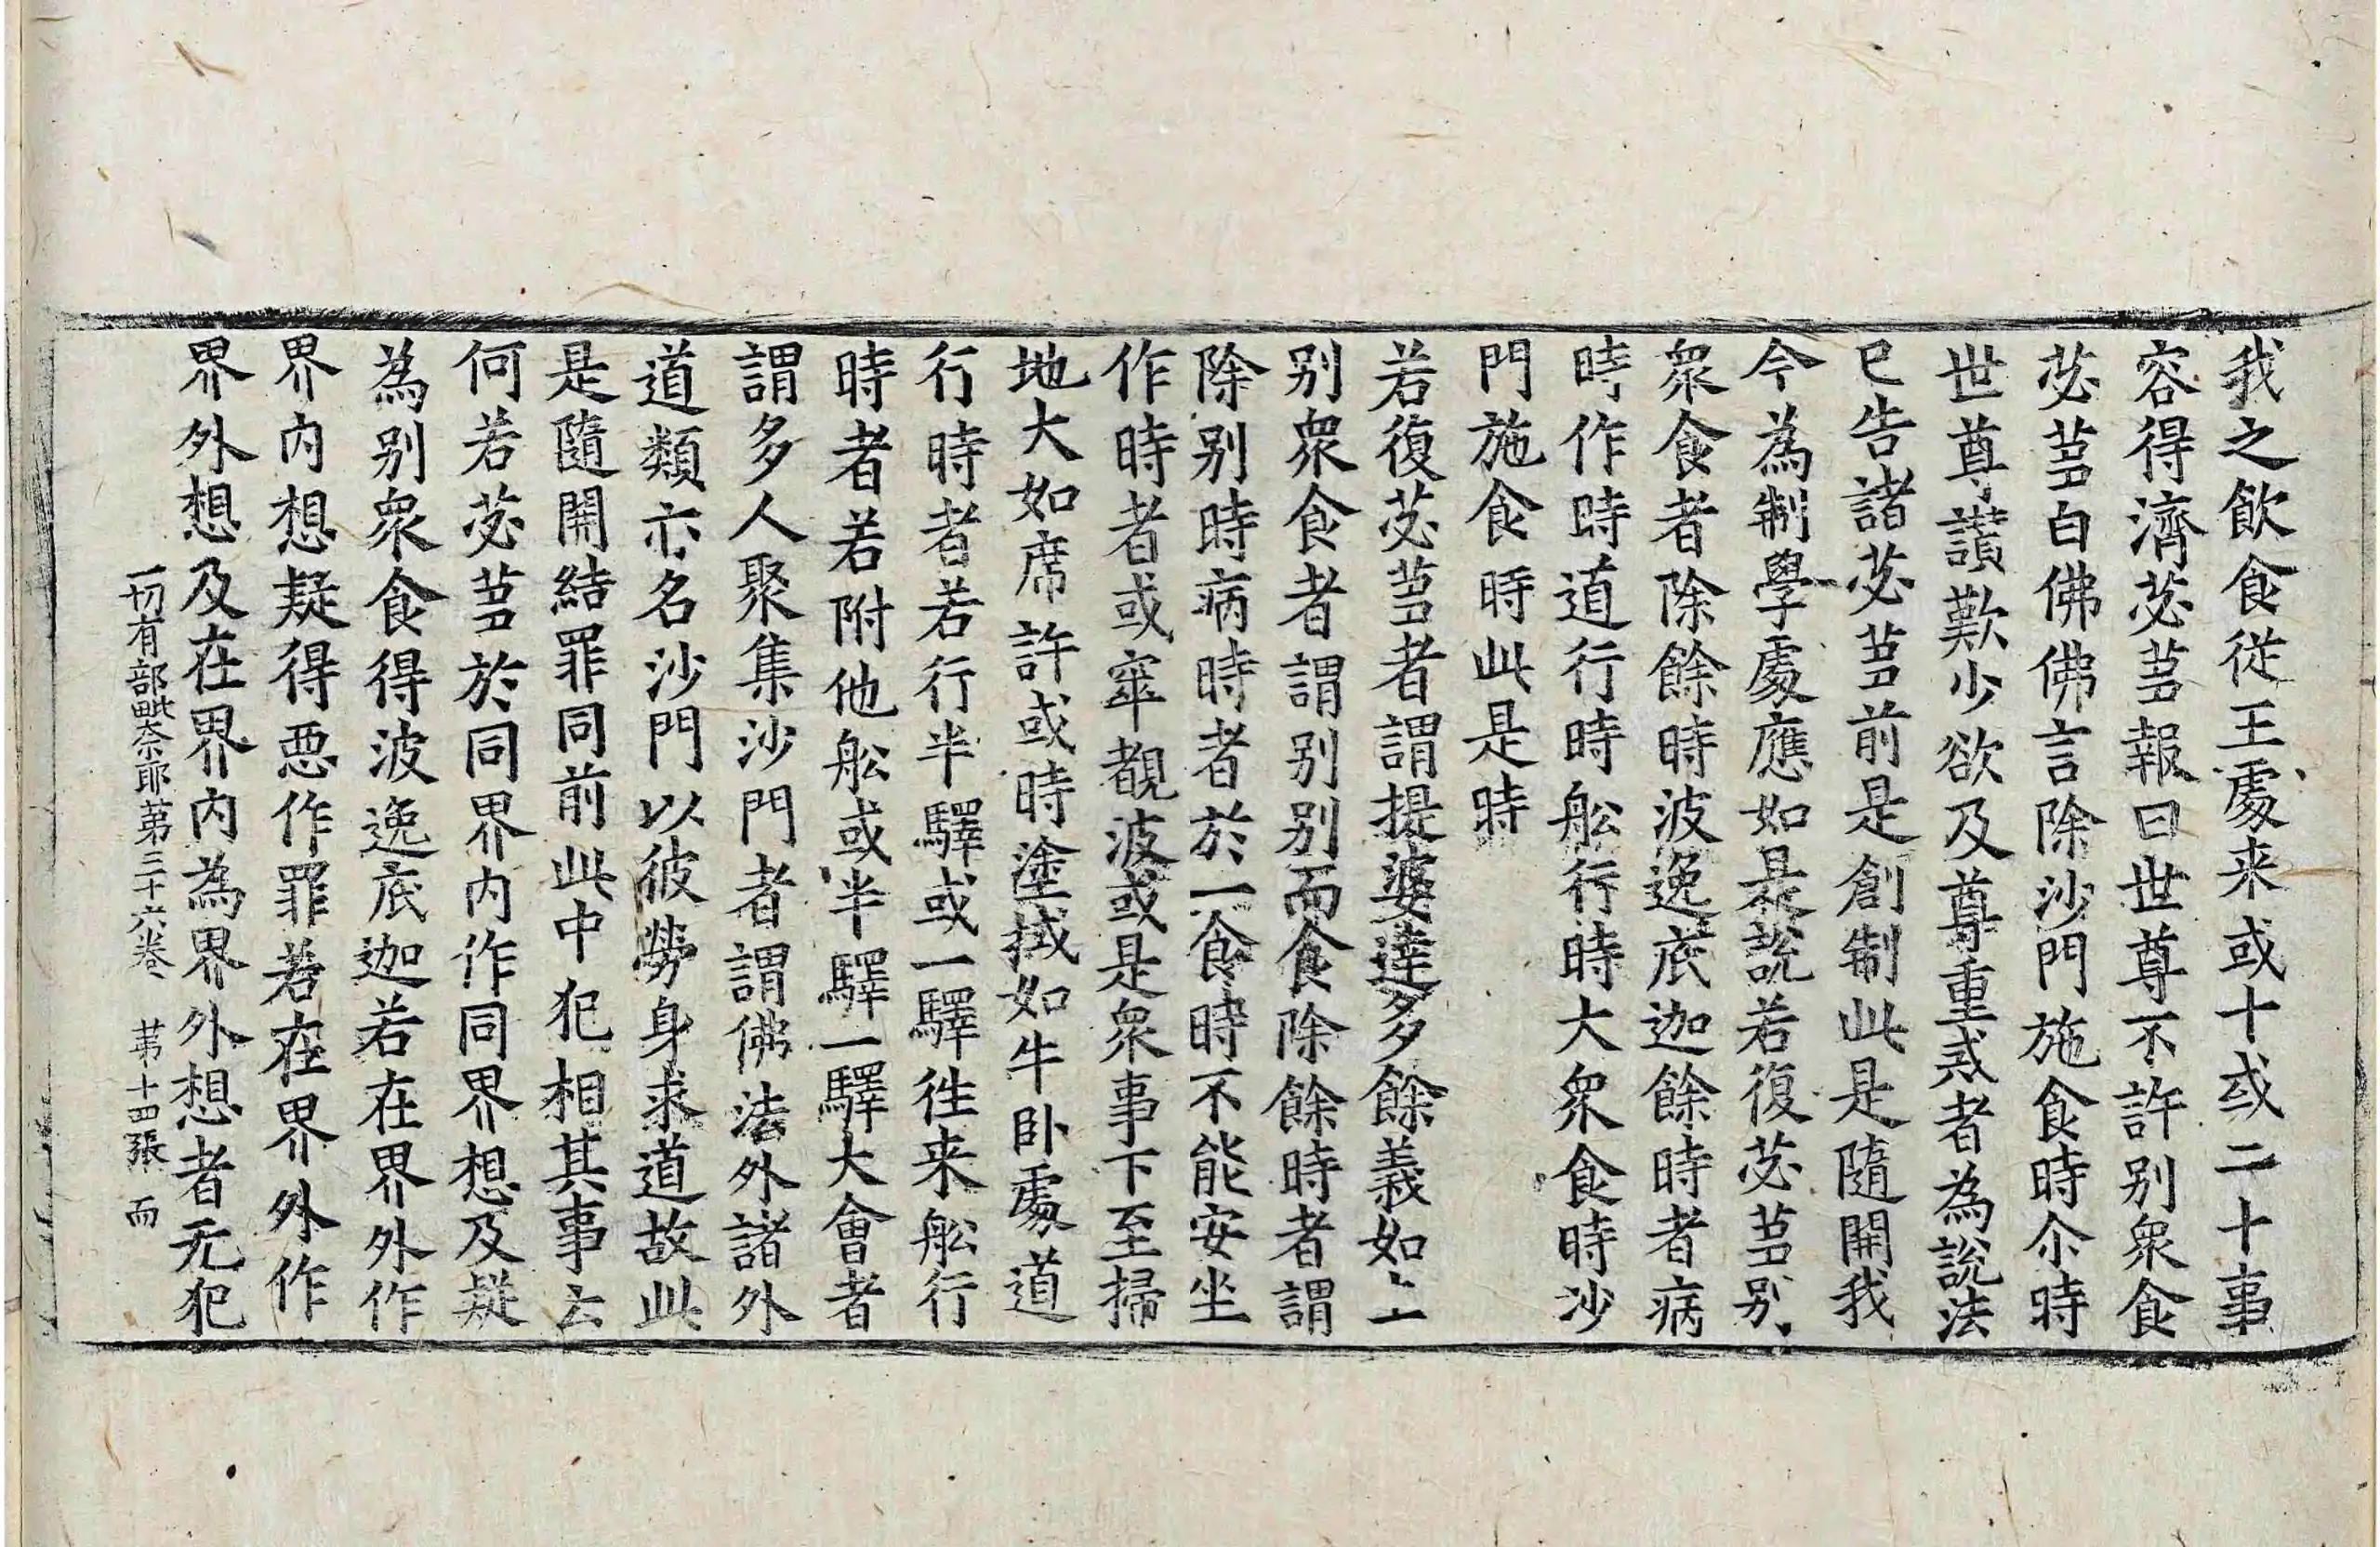 我之飲食從王處来或十或二十事
容得濟苾芻報曰世尊不許别衆食
苾芻白佛佛言除沙門施食時尒時
世尊讃歎少欲及尊重戒者為說法
已告諸苾芻前是創制此是隨開我
今為制學處應如是說若復苾芻别
衆食者除餘時波逸底迦餘時者病
時作時道行時舩行時大衆食時沙
門施食時此是時
若復苾芻者謂提婆達多餘義如上
别衆食者謂别别而食除餘時者謂
除别時病時者於一食時不能安坐
作時者或窣覩波或是衆事下至掃
地大如席許或時塗拭如牛卧處道
行時者若行半驛或一驛徃来舩行
時者若附他舩或半驛一驛大會者
謂多人聚集沙門者謂佛法外諸外
道類亦名沙門以彼勞身求道故此
是隨開結罪同前此中犯相其事云
何若苾芻於同界内作同界想及疑
為别衆食得波逸底迦若在界外作
界内想疑得惡作罪若在界外作
界外想及在界内為界外想者无犯
一切有部毗奈耶第三十六卷 苐十四張 而